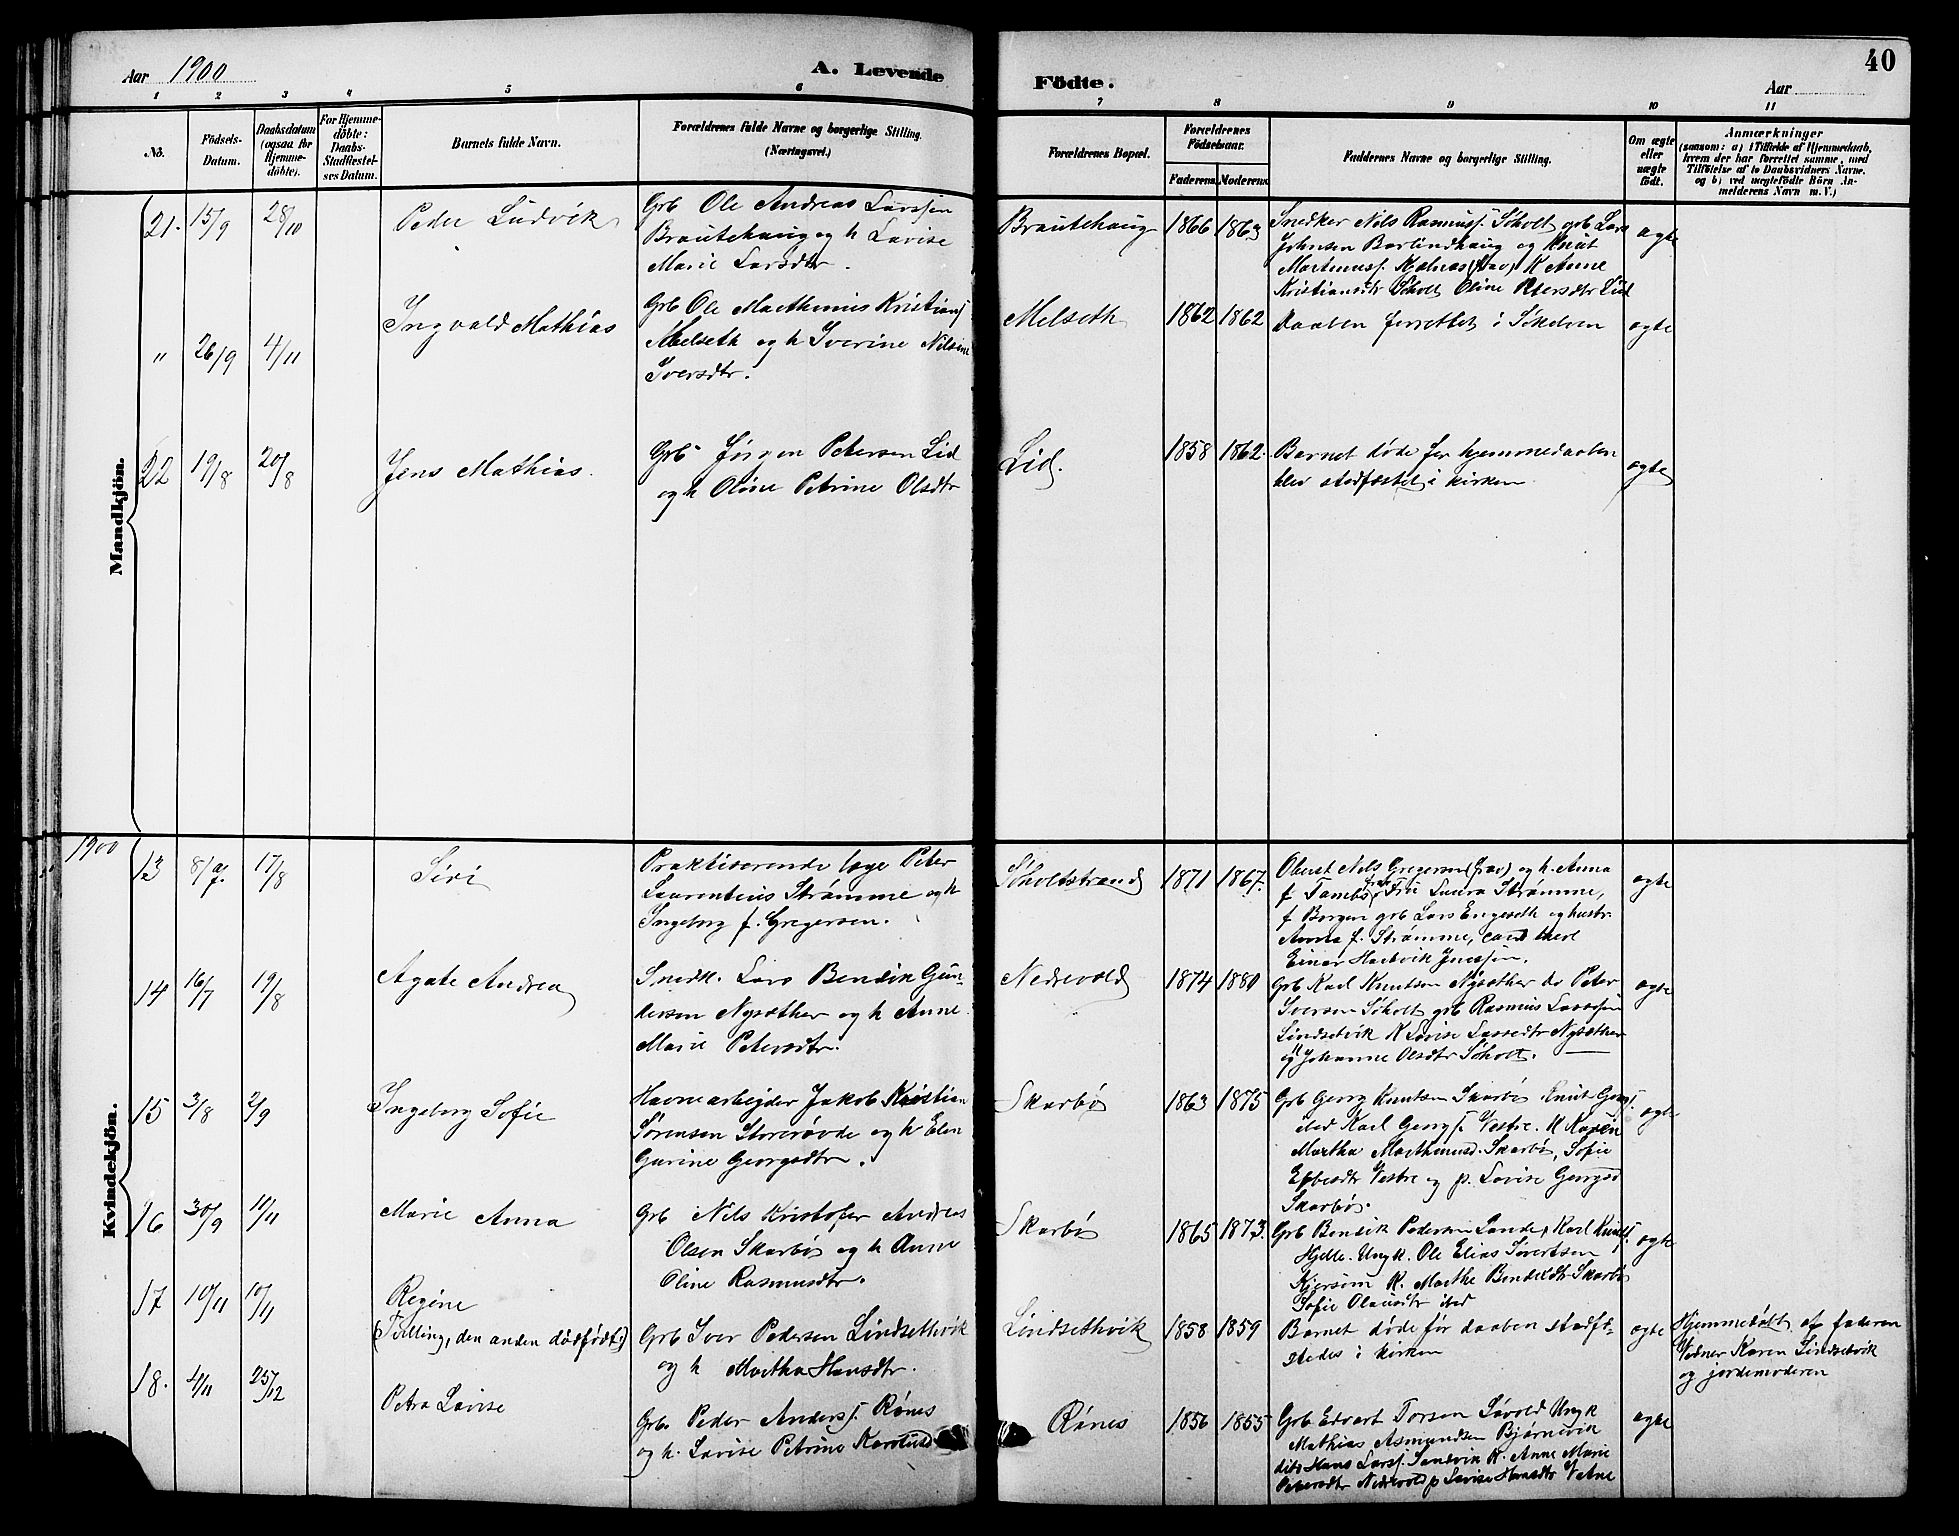 Aar 1900
A. Levende
Födte.
Aar
40
1 2 3 4 5 6 7 8 9 10 11
No.
Födsels-
Datum.
Daabsdatum
(ogsaa for
Hjemme-
döbte).
For Hjemme-
döbte:
Daabs-
Stadfæstel-
ses Datum.
Barnets fulde Navn.
Forældrenes fulde Navne og borgerlige Stilling.
(Næringsvei.)
Forældrenes Bopæl.
Forældrenes
Födselsaar.
Faderens. Moderens.
Faddernes Navne og borgerlige Stilling.
Om ægte
eller
uægte
födt.
Anmærkninger
(saasom: a) i Tilfælde af Hjemmedaab,
hvem der har forrettet samme, med
Tilföielse af to Daabsvidners Navne,
og b) ved uægtefödte Börn An-
melderens Navn m. V.)
Mandkjön.
21. 15/9 28/10
Peder Ludvik
Grb Ole Andreas Larssen
Brautehaug og h Lavise
Marie Larsdtr.
Brautehaug
1866 1863
Snedker Nils Rasmusf. Søholt grb Lars
Johnsen Barlindhaug og Knut
Martinusf. Kjelnæs (frav) K Anne
Kristiansdtr Søholt Oline Petersdtr Lid
ægte
" 26/9 4/11
Ingvald Mathias
Grb Ole Marthinus Kristiansf
Melseth og h Iverine Nilsine
Iversdtr.
Melseth
1862 1862
Daaben forrettet i Søkelven
ægte
22 19/8 20/8
Jens Mathias.
Grb Jørgen Petersen Lid
og h Oline Petrine Olsdtr
Lid.
1858 1862.
Barnet døde før hjemmedaaben
blev stadfæstet i kirken
ægte
Kvindekjön.
1900
13 8/7. 17/8
Siri
Praktiserende læge Peter
Laurentius Strømme og h
Ingeborg f. Gregersen.
Søholtstrand
1871 1867.
Oberst Nils Gregersen (frav) og h. Anna
f Tambs, Fru Laura Strømme,
f Borgen grb Lars Engeseth og hustr.
Anna f. Strømme, cand theol
Einar Hartvik Jenssen.
ægte
14 16/7 19/8
Agate Andrea
Snedk. Lars Bendik Gun-
dersen Nysæther og h Anne
Marie Petersdtr.
Nedrevold
1874 1880
Grb Karl Knutsen Nysæther do Peter
Iversen Søholt grb Rasmus Larssen
Lindsetvik K Lovise Larsdtr Nysæther
og Johanne Olsdtr Søholt.
ægte
15 3/8 2/9
Ingeborg Sofie
Havnearbejder Jakob Kristian
Sørensen Storerøvde og h Elen
Gurine Georgsdtr.
Skarbø
1863 1875
Grb Georg Knutsen Skarbø Knut Georgf.
sted Karl Georgf. Vestre. K Karen
Martha Marthinusd. Skarbø, Sofie
Vestre og p. Lovise Georgsd
Skarbø.
ægte
16 30/9 11/11
Marie Anna
Grb Nils Kristofer Andreas
Olsen Skarbø og h Anne
Oline Rasmusdtr.
Skarbø
1865 1873.
Grb Bendik Pedersen Lande, Karl Knutsf.
Hjelle. Ungk. Ole Elias Sivertsen
Kjersem K. Marthe Bendikdtr Skarbø
Sofie Olausdtr sted
ægte
17 10/11 10/11
Regine
(Tvilling, den anden dødfødt.)
Grb Iver Pedersen Lindsethvik
og h Martha Hansdtr.
Lindsethvik
1858 1859
Barnet døde før daaben stadfæ-
stedes i kirken
ægte
Hjemmedøbt af faderen
Vidner Karen Lindsetvik
og jordemoderen
18. 4/11 25/12
Petra Lovise
Grb. Peder Andersf. Rønes
og h. Lovise Petrine Karolusd
Rønes
1856 1855
Grb Edvart Torsen Løvold Ungk
Mathias Asmundsen Bjørnevik
dito Hans Larsf. Sandvik K. Anne Marie
Petersdtr Nedrevold p Lovise Hansdtr Vatne
ægte